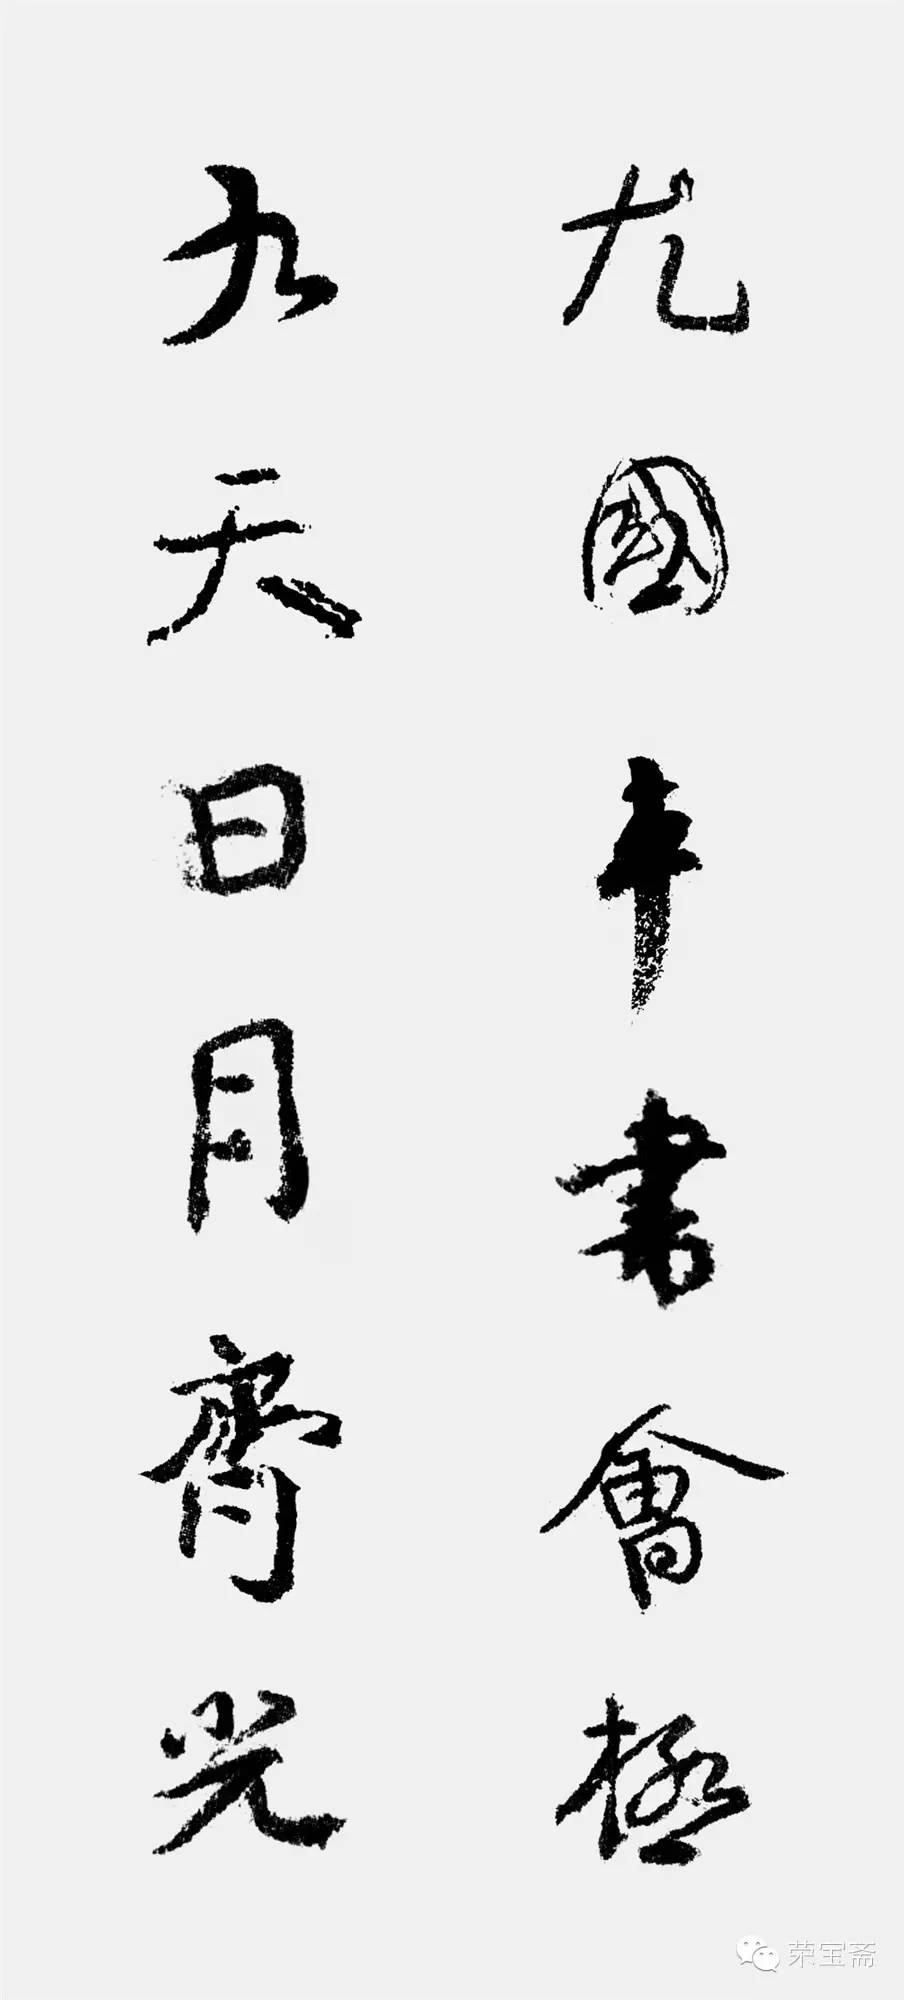 國車書會極
九天日月齊光
荣宝斋